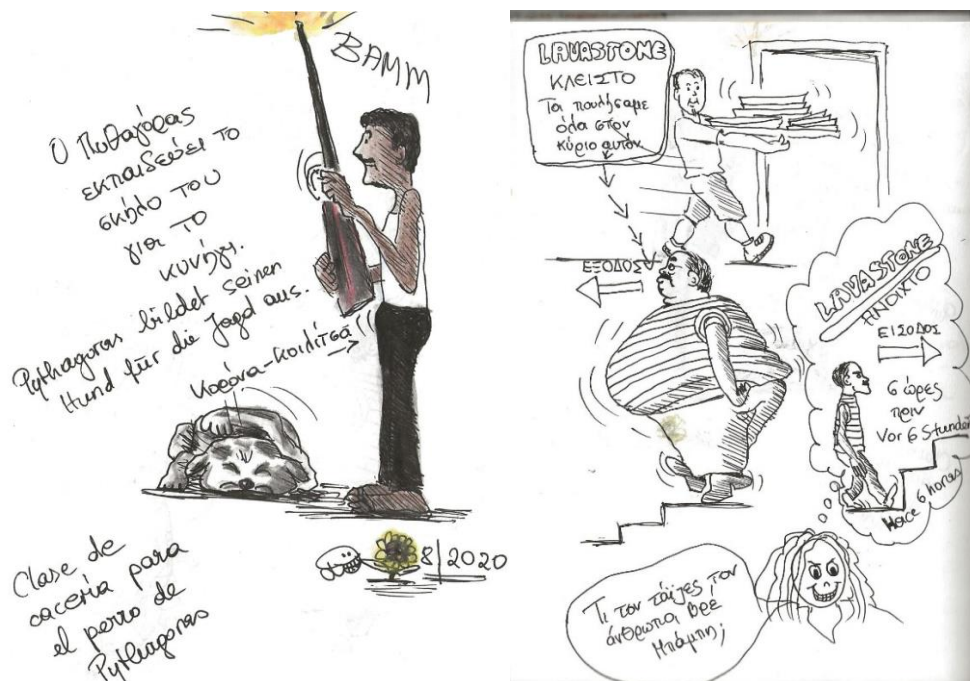 BAMM
Ο Πυθαγόρας
εκπαιδεύει το
σκύλο του
για το
κυνήγι.
Pythagoras bildet seinen
Hund für die Jagd aus.
Κορόνα-κοιλίτσα
8/2020
Clase de
caceria para
el perro de
Pythagoras
LAVASTONE
ΚΛΕΙΣΤΟ
Τα πουλήσαμε
όλα στον
κύριο αυτόν
ΕΞΟΔΟΣ
LAVASTONE
ΑΝΟΙΧΤΟ
ΕΙΣΟΔΟΣ
6 ώρες
πριν
Vor 6 Stunden
Hace 6 horas
Τι τον τάϊζες τον
άνθρωπο, βρέ
Μπάμπη;